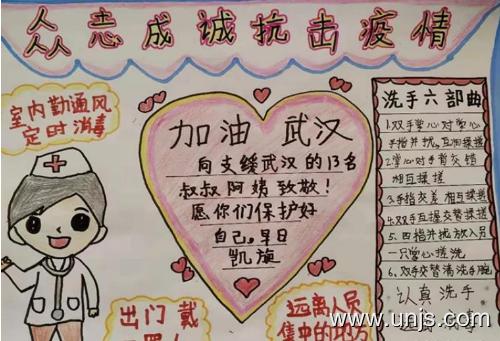 众志成诚抗击疫情
室内勤通风
定时消毒
加油 武汉
向支缓武汉的13名
叔叔阿姨致敬!
愿你们保护好
自己。早日
凯旋
洗手六部曲
1.双手掌心对掌心
手指并拢,互相揉搓
2.掌心对手背交错
相互揉搓
3.手指交叉相互揉搓
4.双手互握交替揉搓
5.四指并拢放入另
一只掌心搓洗
6.双手交替清洗手腕
认真洗手
出门戴
远离人员
集中的地方
www.unjs.com